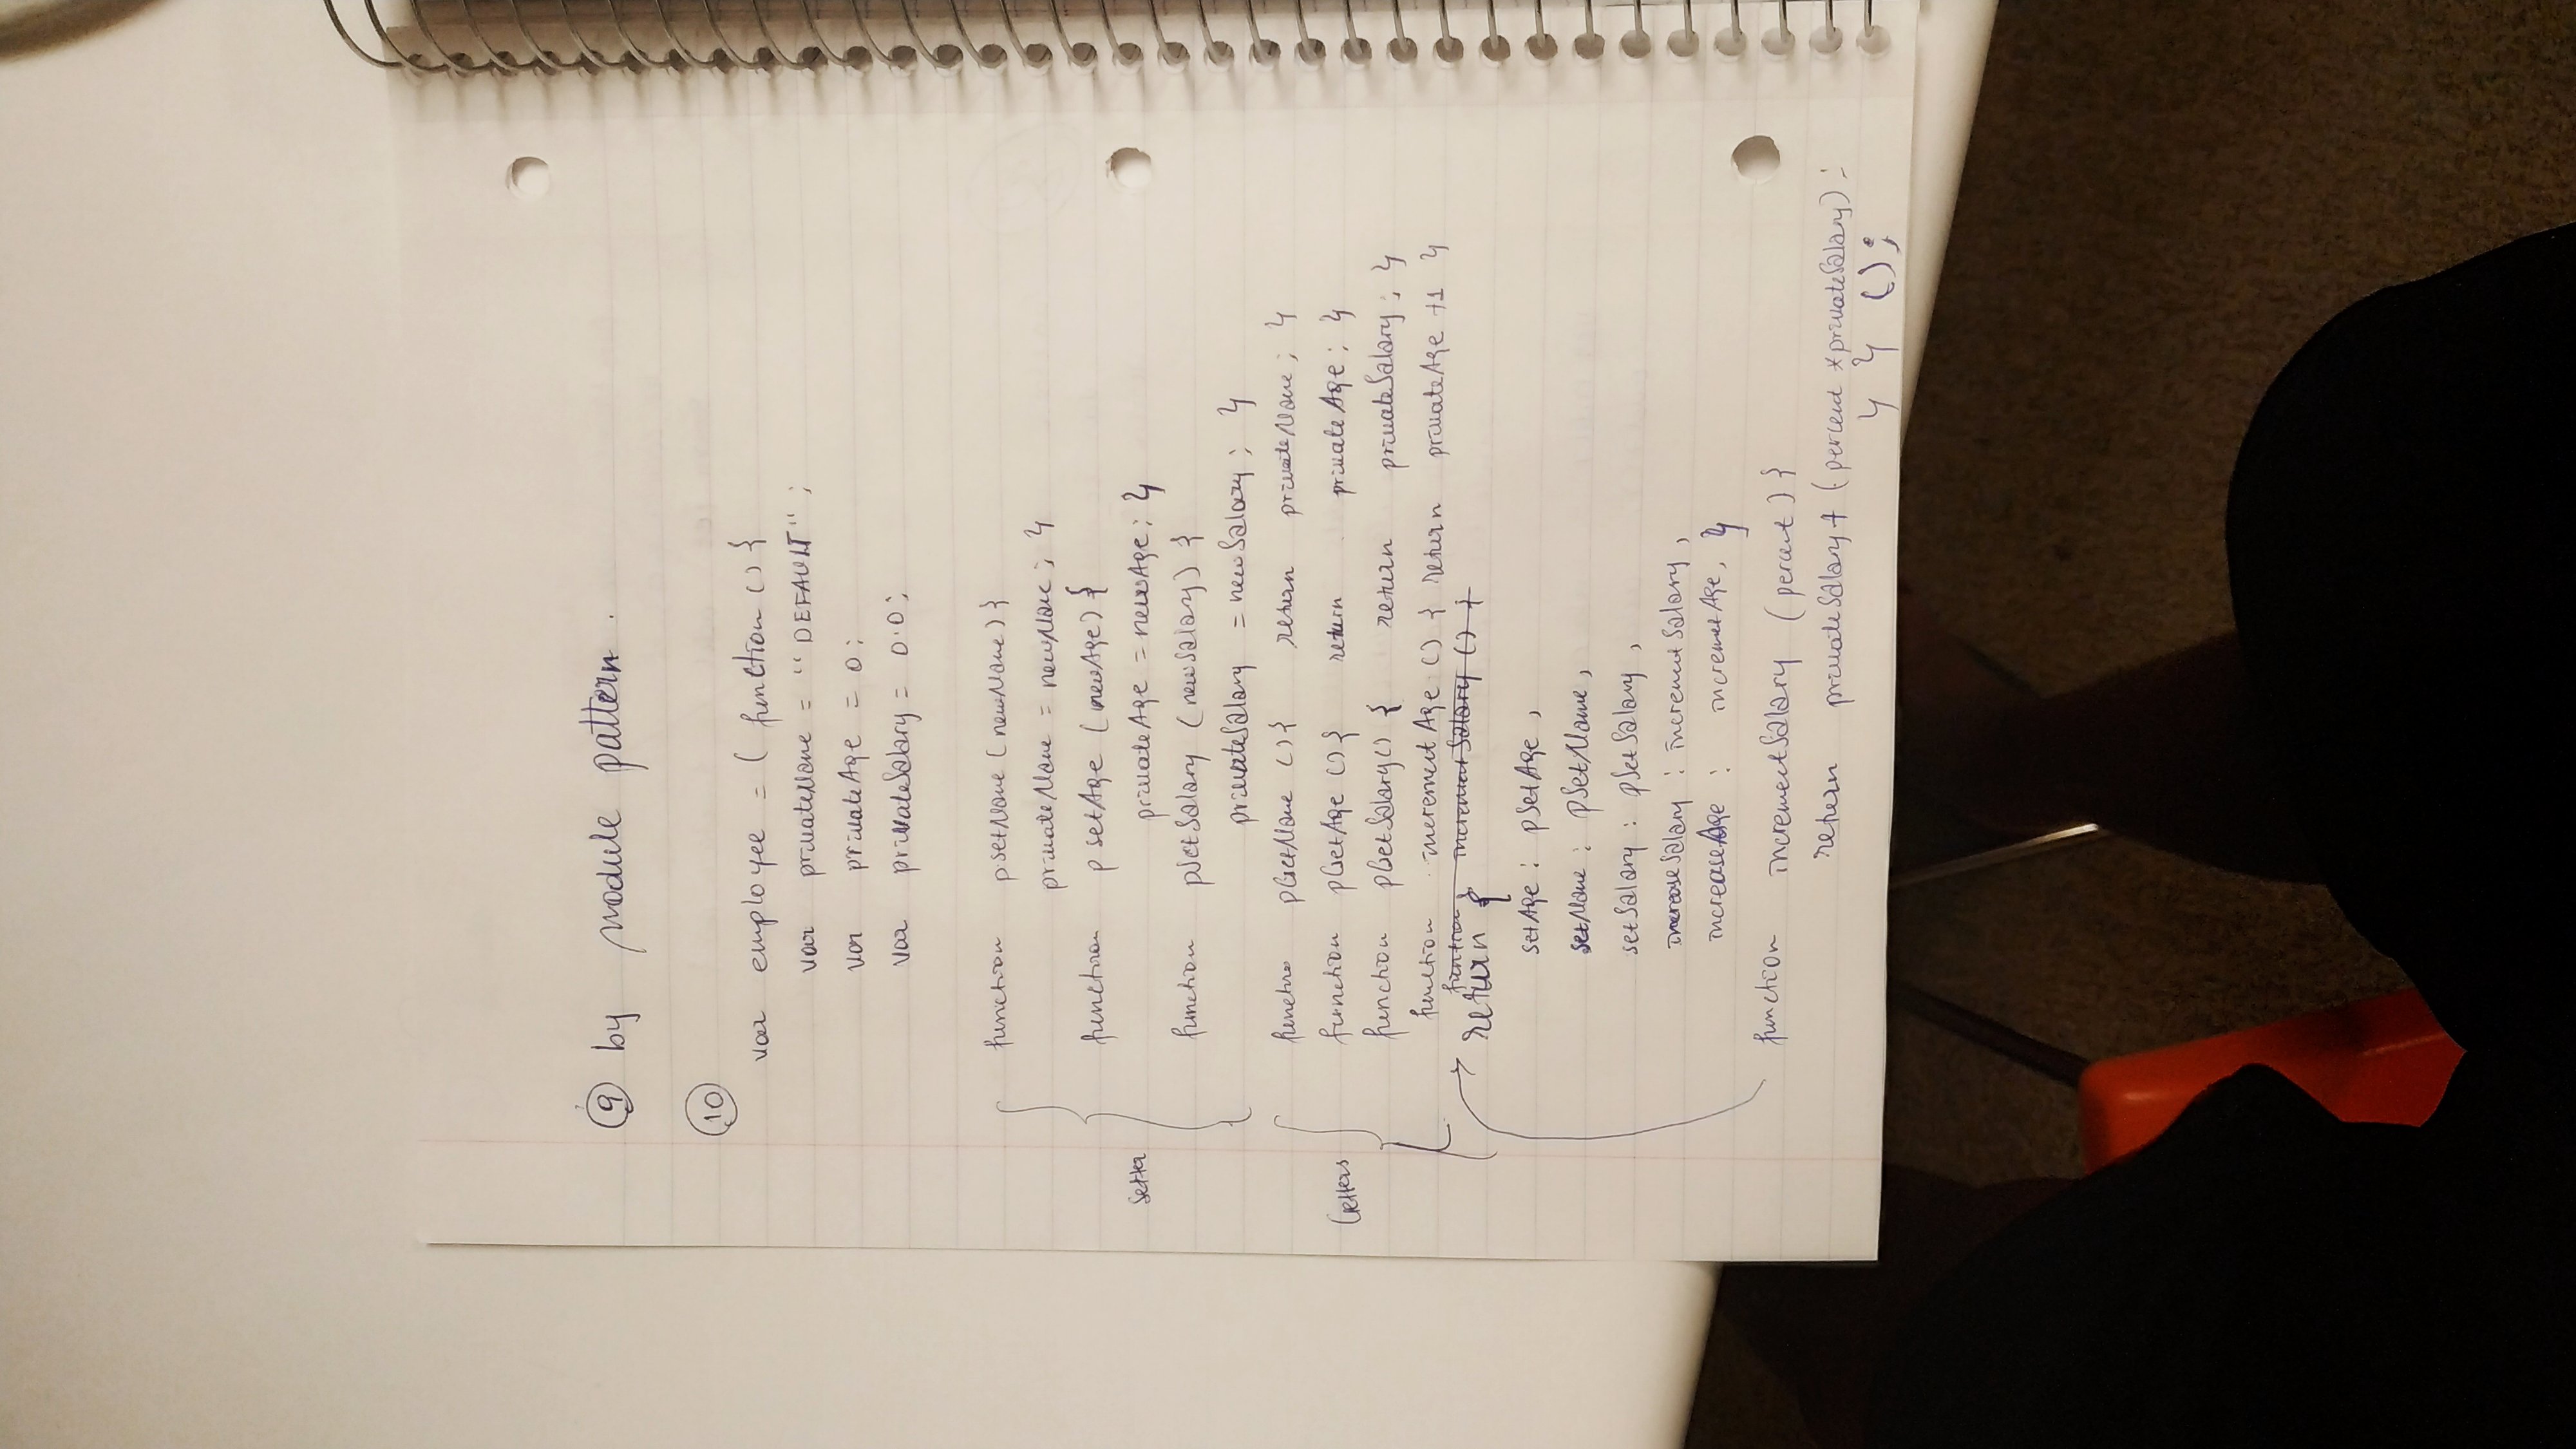 9 by module pattern.
10
var employee = ( function () {
var privateName = "DEFAULT" ;
var privateAge = 0;
var privateSalary = 0.0;
function psetName (newName) {
privateName = newName; }
function psetAge (newAge) {
Setter
privateAge = newAge; }
function pSetSalary (newSalary) {
privateSalary = newSalary; }
function pGetName () { return privateName; }
Getters
function pGetAge () { return privateAge; }
function pGetSalary() { return privateSalary; }
function incrementAge () { return privateAge +1 }
function incrementSalary () {
return {
setAge : pSetAge ,
setName : pSetName ,
setSalary : pSetSalary ,
increaseSalary : incrementSalary ,
increaseAge : incremetAge, }
function incrementSalary (percent) {
return privateSalary + (percent *privateSalary) ;
} } ();